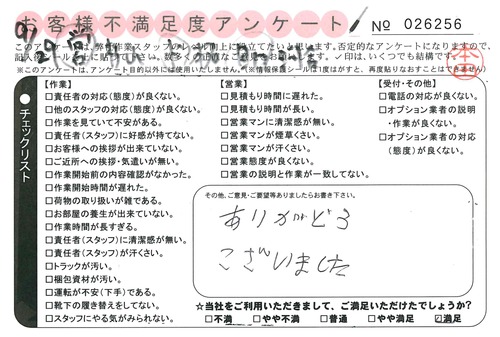 お客様不満足度アンケート
No 026256
9/29
【作業】
□責任者の対応(態度)が良くない。
□他のスタッフの対応(態度)が良くない。
□作業を見ていて不安がある。
□責任者(スタッフ)に好感が持てない。
□お客様への挨拶が出来ていない。
□ご近所への挨拶・気遣いが無い。
□作業開始前の内容確認がなかった。
□作業開始時間が遅れた。
□荷物の取り扱いが雑である。
□お部屋の養生が出来ていない。
□作業時間が長すぎる。
□責任者(スタッフ)に清潔感が無い。
□責任者(スタッフ)が汗くさい。
□トラックが汚い。
□梱包資材が汚い。
□運転が不安(下手)である。
□靴下の履き替えをしてない。
□スタッフにやる気がみられない。
【営業】
□見積もり時間に遅れた。
□見積もり時間が長い。
□営業マンに清潔感が無い。
□営業マンが煙草くさい。
□営業マンが汗くさい。
□営業態度が良くない。
□営業の説明と作業が一致してない。
【受付・その他】
□電話の対応が良くない。
□オプション業者の説明
・作業が良くない。
□オプション業者の対応
(態度)が良くない。
チェックリスト
その他、ご意見・ご要望等ありましたらお書き下さい。
ありがとう
ございました
★当社をご利用いただきまして、ご満足いただけたでしょうか?
□不満 □やや不満 □普通 □やや満足 ☑満足